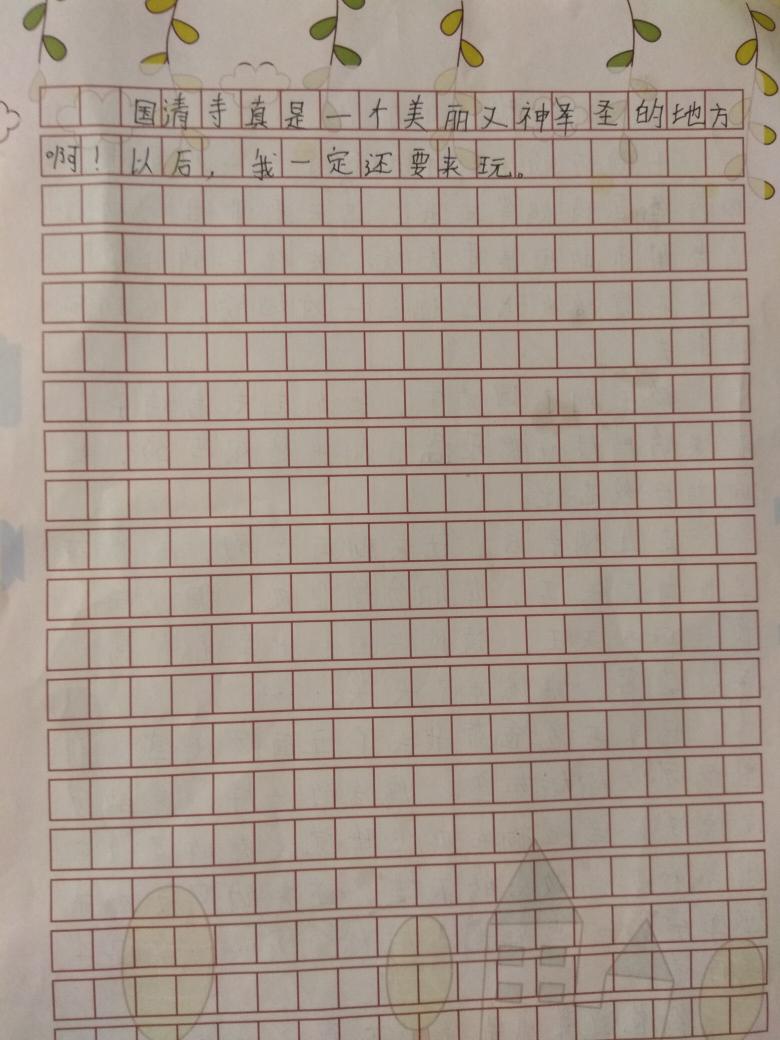 国清寺真是一个美丽又神圣的地方
啊！以后，我一定还要来玩。